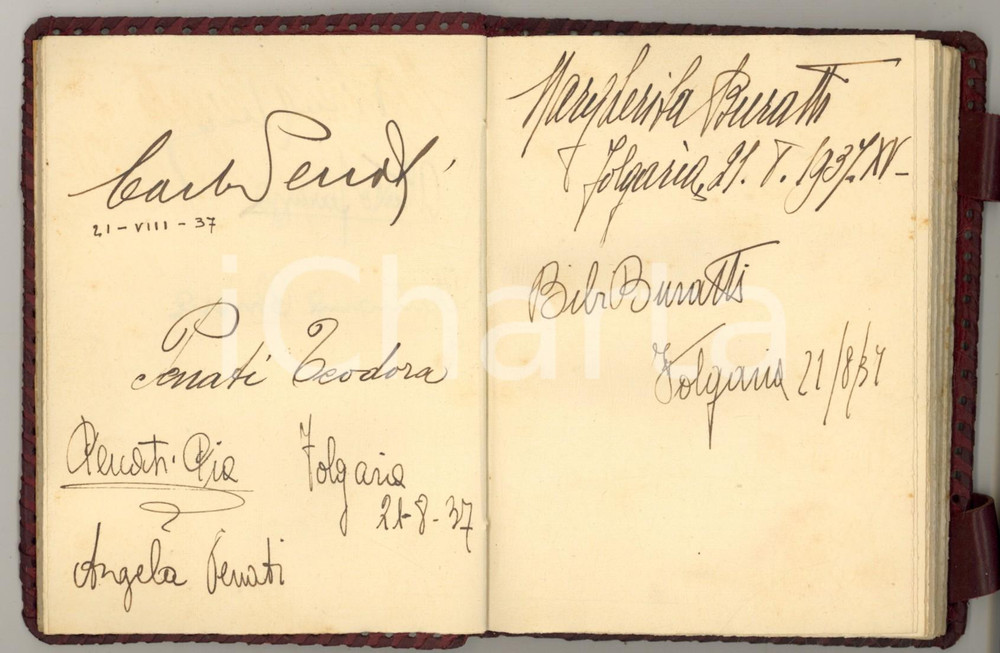 Carlo Penati
21-VIII-37
Penati Teodora
Penati Pia
Folgaria
21-8-37
Angela Penati
Margherita Buratti
Folgaria, 21. 8. 1937. XV-
Bibi Buratti
Folgaria 21/8/37
iCharta